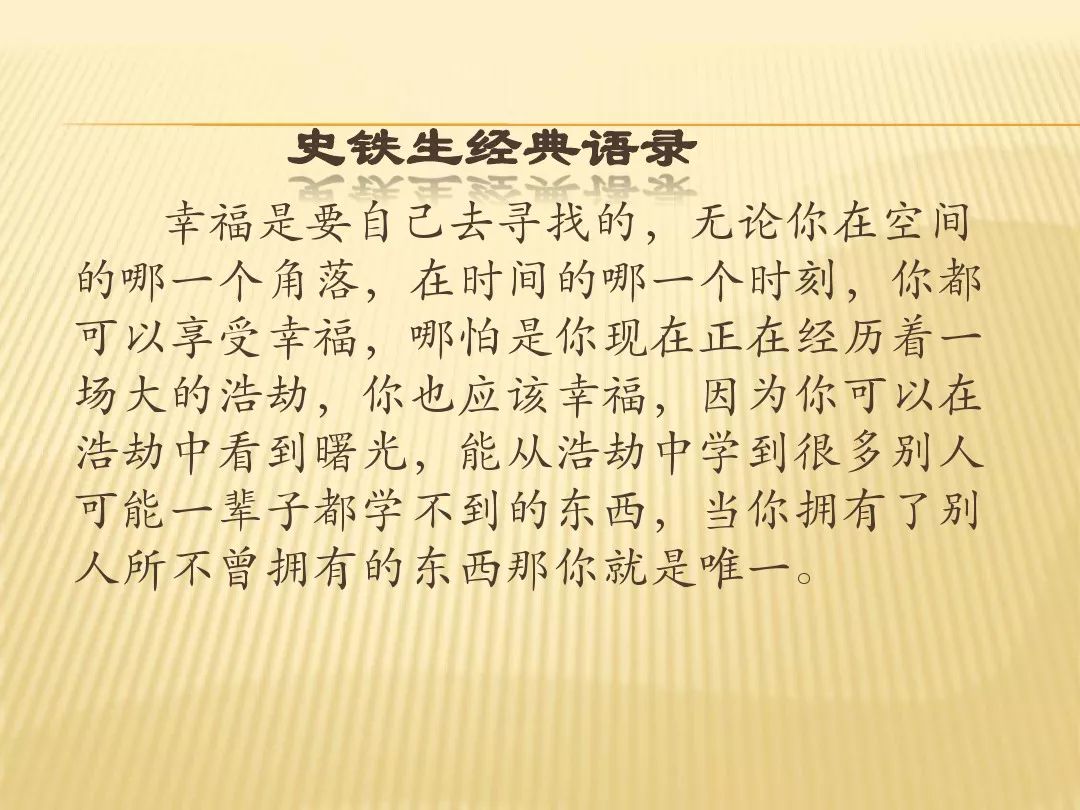 史铁生经典语录
幸福是要自己去寻找的，无论你在空间
的哪一个角落，在时间的哪一个时刻，你都
可以享受幸福，哪怕是你现在正在经历着一
场大的浩劫，你也应该幸福，因为你可以在
浩劫中看到曙光，能从浩劫中学到很多别人
可能一辈子都学不到的东西，当你拥有了别
人所不曾拥有的东西那你就是唯一。